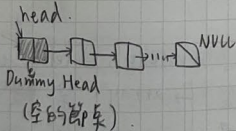 head.
NULL
Dummy Head
(空的節点).